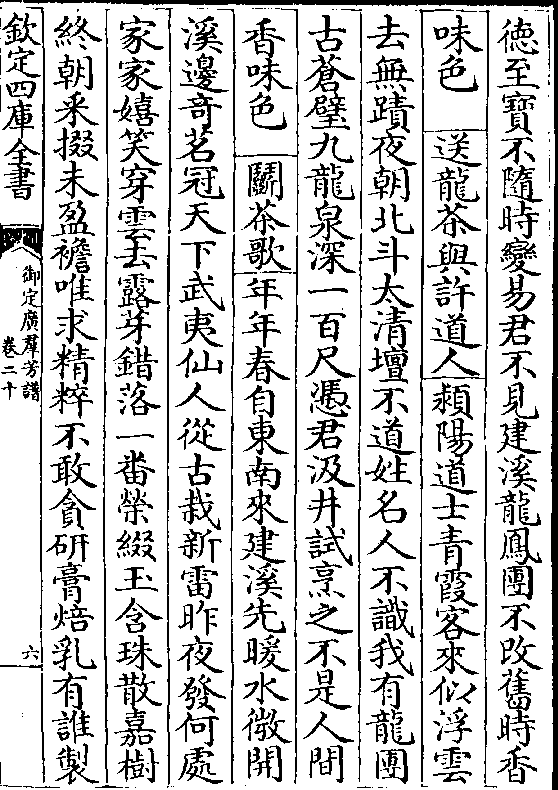 徳至寳不隨時變易君不見建溪龍鳳團不改舊時香
味色　送龍茶與許道人　潁陽道士青霞客來似浮雲
去無蹟夜朝北斗太清壇不道姓名人不識我有龍團
古蒼璧九龍泉深一百尺憑君汲井試烹之不是人間
香味色　鬭茶歌　年年春自東南來建溪先暖水微開
溪邊竒茗冠天下武夷仙人從古栽新雷昨夜發何處
家家嬉笑穿雲去露芽錯落一番榮綴玉含珠散嘉樹
終朝采掇未盈襜唯求精粹不敢貪研膏焙乳有誰製
欽定四庫全書
御定廣羣芳譜
卷二十
六